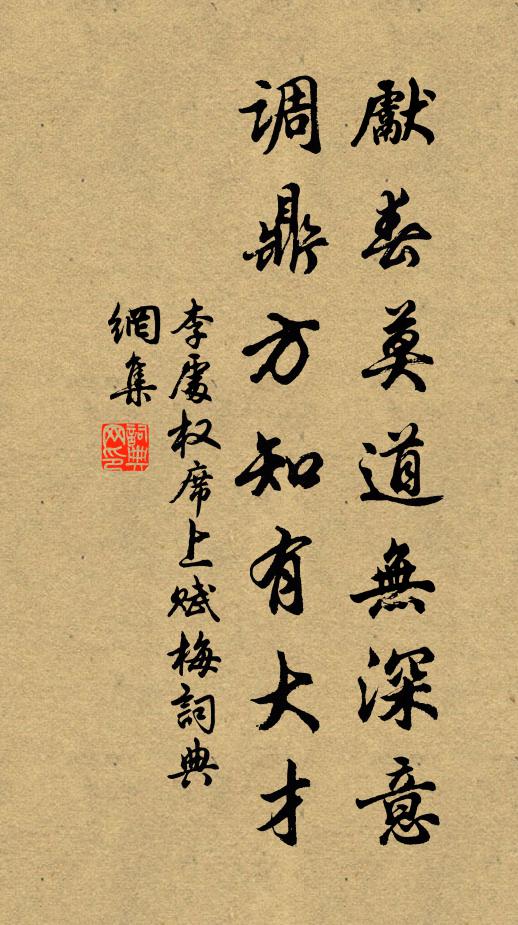 獻春莫道無深意
调鼎方知有大才
李處权席上赋梅詞典
網集
詞典網印